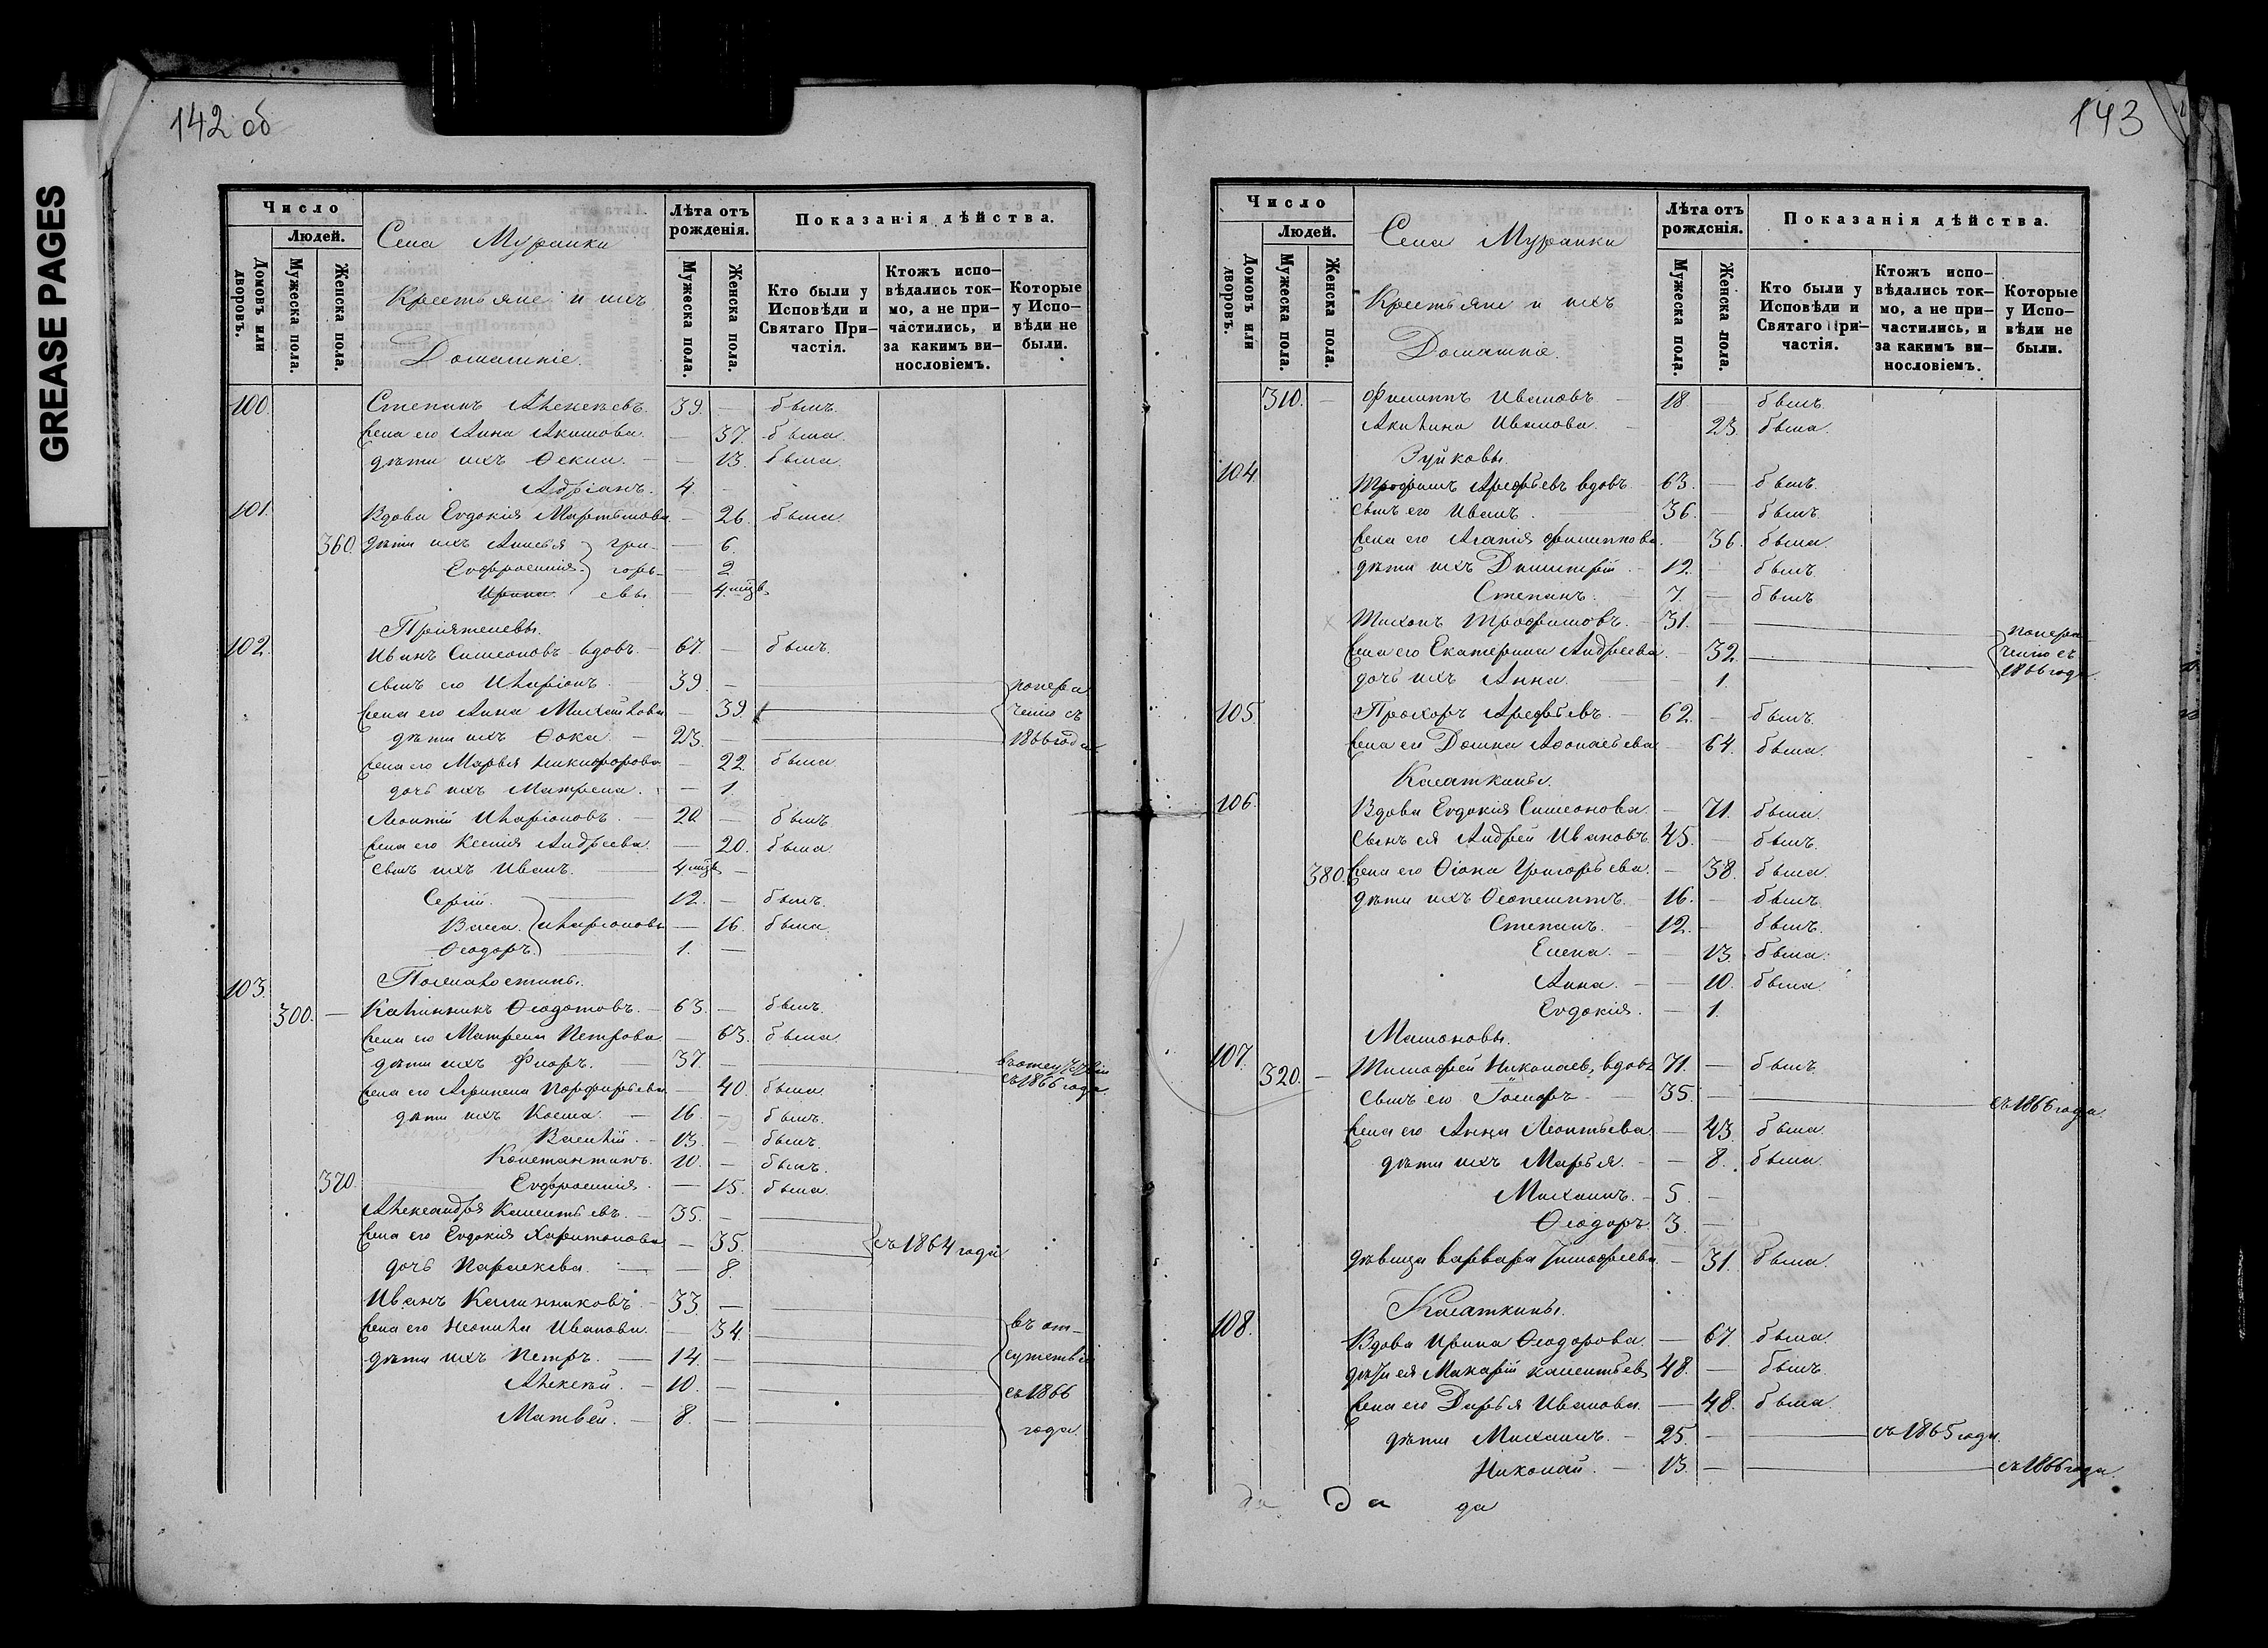 GREASE PAGES
142 об
Число
Людей.
Домовъ или дворовъ.
Мужеска пола.
Женска пола.
Села Муранки
Крестьяне и ихъ
Домашніе.
Лѣта отъ рожденія.
Мужеска пола.
Женска пола.
Показанія дѣйства.
Кто были у Исповѣди и Святаго При-частія.
Ктожъ испо-вѣдались ток-мо, а не при-частились, и за какимъ ви-нословіемъ.
Которые у Испо-вѣди не были.
100. Степанъ Алексѣевъ. 39. — былъ.
Жена его Анна Акимова. — 37. была.
дѣти ихъ Ѳекла. — 13. была.
Адріанъ. 4. —
101. Вдова Евдокія Мартынова — 26. была.
360. дѣти ихъ Анисья } гри- — 6.
Евфросинія } горь- — 2
Ирина. евы — 4 мѣв.
Пріятелевы.
102. Иванъ Симеоновъ вдовъ. 67. — былъ.
сынъ его Иларіонъ. 39. —
Жена его Анна Михайлова — 39.
дѣти ихъ Ѳока. 23. — 1866 года
Жена его Марья Никифорова — 22. была.
дочь ихъ Матрена. — 1.
Леонтій Иларіоновъ. 20. — былъ.
Жена его Ксенія Андреева. — 20. была
сынъ ихъ Иванъ. 4 мѣв —
Сергій. 12. — былъ.
Васса. } Иларіоновы — 16. была.
Ѳеодоръ. } 1. —
103.
300. — Калинникъ Ѳеодотовъ. 63. — былъ.
Жена его Матрена Петрова — 63. была.
дѣти ихъ Флоръ. 37. — съ 1866 года
Жена его Агрипена Порфирьева — 40. была.
дѣти ихъ Косма. 16. — былъ.
Василій. 13. — былъ.
Константинъ. 10. — былъ.
370. Евфросинія. — 15. была.
Александръ Калистовъ. 35. —
Жена его Евдокія Харитонова — 35. съ 1864 года.
дочь Параскева. — 8.
Иванъ Калинниковъ. 33. —
Жена его Неонила Иванова. — 34. въ от-
дѣти ихъ Петръ. 14. — сутствіи
Алексѣй. 10. — съ 1866
Матвей. 8. — года.
143
Число
Людей.
Домовъ или дворовъ.
Мужеска пола.
Женска пола.
Села Муранки
Крестьяне и ихъ
Домашніе.
Лѣта отъ рожденія.
Мужеска пола.
Женска пола.
Показанія дѣйства.
Кто были у Исповѣди и Святаго При-частія.
Ктожъ испо-вѣдались ток-мо, а не при-частились, и за какимъ ви-нословіемъ.
Которые у Испо-вѣди не были.
310. — Филиппъ Ивановъ. 18 — былъ.
Акилина Иванова. 23. была.
Зуйковы.
104. Трофимъ Арефьевъ вдовъ. 63. — былъ.
сынъ его Иванъ. 36. — былъ.
Жена его Агапія Филиппова. — 36. была.
дѣти ихъ Димитрій. 12. — былъ.
Степанъ. 7. — былъ
Тихонъ Трофимовъ. 31. —
Жена его Екатерина Андреева. — 32.
дочь ихъ Анна. — 1. 1866 года.
105. Прохоръ Арефьевъ. 62. — былъ.
Жена его Домна Афонасьева — 64. была.
Калаткины.
106. Вдова Евдокія Симеонова. — 71. была.
Сынъ ея Андрей Ивановъ. 45. — былъ.
380. Жена его Ѳіона Григорьева. — 38. была.
дѣти ихъ Ѳеопемптъ. 16. — былъ.
Степанъ. 12. — былъ.
Елена. — 13. была.
Анна. — 10. была.
Евдокія. — 1.
107.
320. — Тимофей Николаев, вдовъ 71. — былъ.
Сынъ его 35. — съ 1866 года.
Жена его Анна Леонтьева. — 43. была.
дѣти ихъ Марья. — 8. была.
Михаилъ. 5. —
Ѳеодоръ. 3. —
дѣвица Варвара Тимофеева. — 31. была.
Калаткины.
108. Вдова Ирина Ѳеодорова. — 67. была.
дѣти ея Макарій 48. — былъ.
Жена его Дарья Иванова. — 48. была.
дѣти Михаилъ. 25. — съ 1865 года.
Николай. 13. — съ 1866 года.
да да да